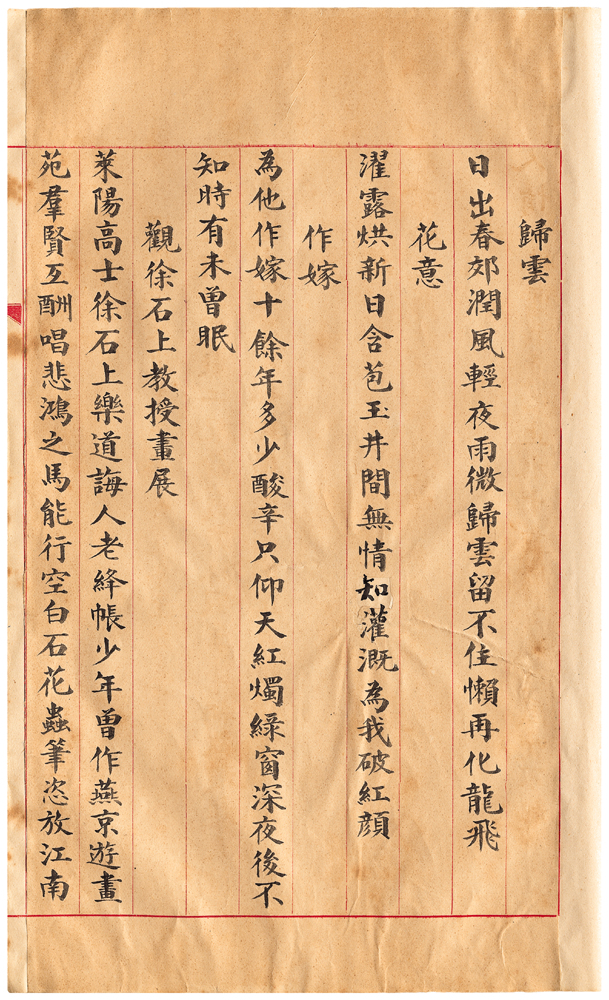 歸雲
日出春郊潤風輕夜雨微歸雲留不住懶再化龍飛
花意
濯露烘新日含苞玉井間無情知灌溉為我破紅顔
作嫁
為他作嫁十餘年多少酸辛只仰天紅燭綠窗深夜後不
知時有未曾眠
觀徐石上教授畫展
萊陽高士徐石上樂道誨人老絳帳少年曾作燕京遊畫
苑羣賢互酬唱悲鴻之馬能行空白石花蟲筆恣放江南